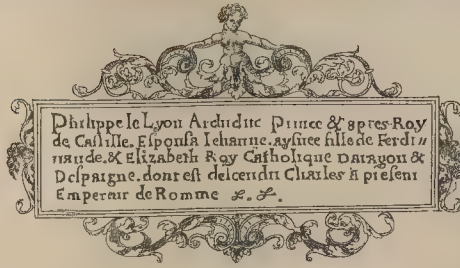 Philippe le Lyon Archiduc Prince & apres Roy
de Castille. Esponsa Iehanne. aysnee fille de Ferdi=
nande. & Elizabeth Roy Catholique Darragon &
Despaigne. dont est descendu Charles à present
Empereur de Romme